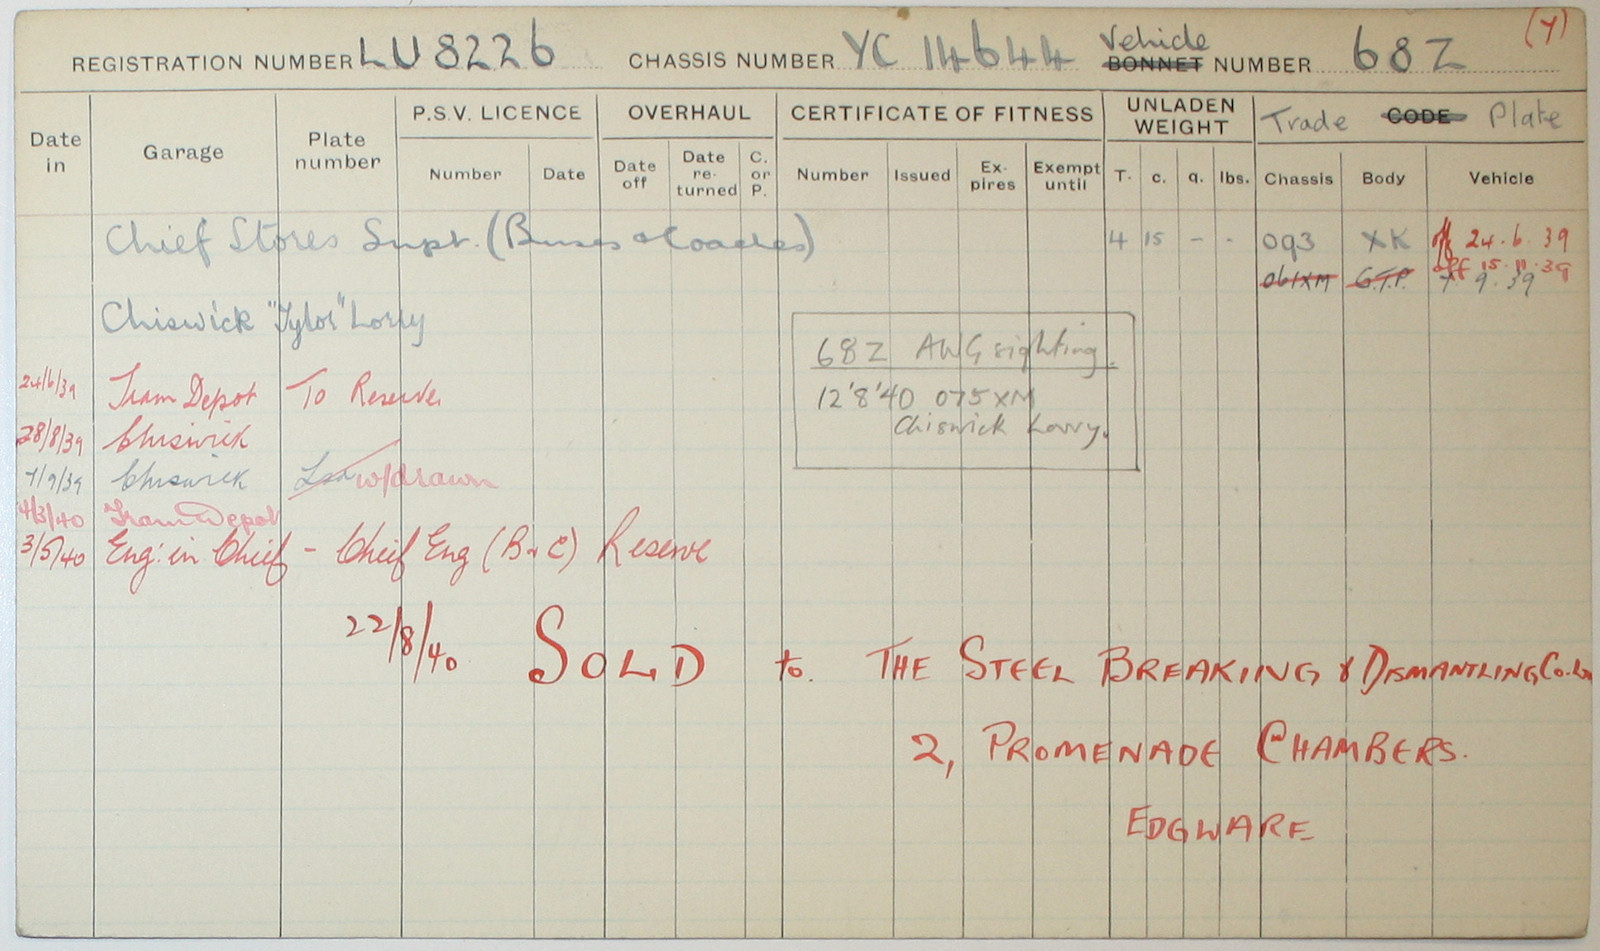 (Y)
REGISTRATION NUMBER LU 8226 CHASSIS NUMBER YC 14644 Vehicle BONNET NUMBER 68Z
Date in Garage Plate number P.S.V. LICENCE OVERHAUL CERTIFICATE OF FITNESS UNLADEN WEIGHT Trade CODE Plate
Number Date Date off Date re-turned C. or P. Number Issued Ex-pires Exempt until T. c. q. lbs. Chassis Body Vehicle
Chief Stores Supt. (Buses & Coaches) 4 15 - - 093 XK off 24.6.39
061XM G.T.P. off 15.11.39
7 9 39
Chiswick "Tylor" Lorry
68Z AWG sighting.
12'8'40 075XM
Chiswick Lorry.
24/6/39 Tram Depot To Reserve
28/8/39 Chiswick
7/9/39 Chiswick w/drawn
4/3/40 Tram Depot
3/5/40 Eng. in Chief - Cheif Eng (B & C) Reserve
22/8/40 SOLD to. THE STEEL BREAKING & DISMANTLING Co.
2, PROMENADE CHAMBERS.
EDGWARE